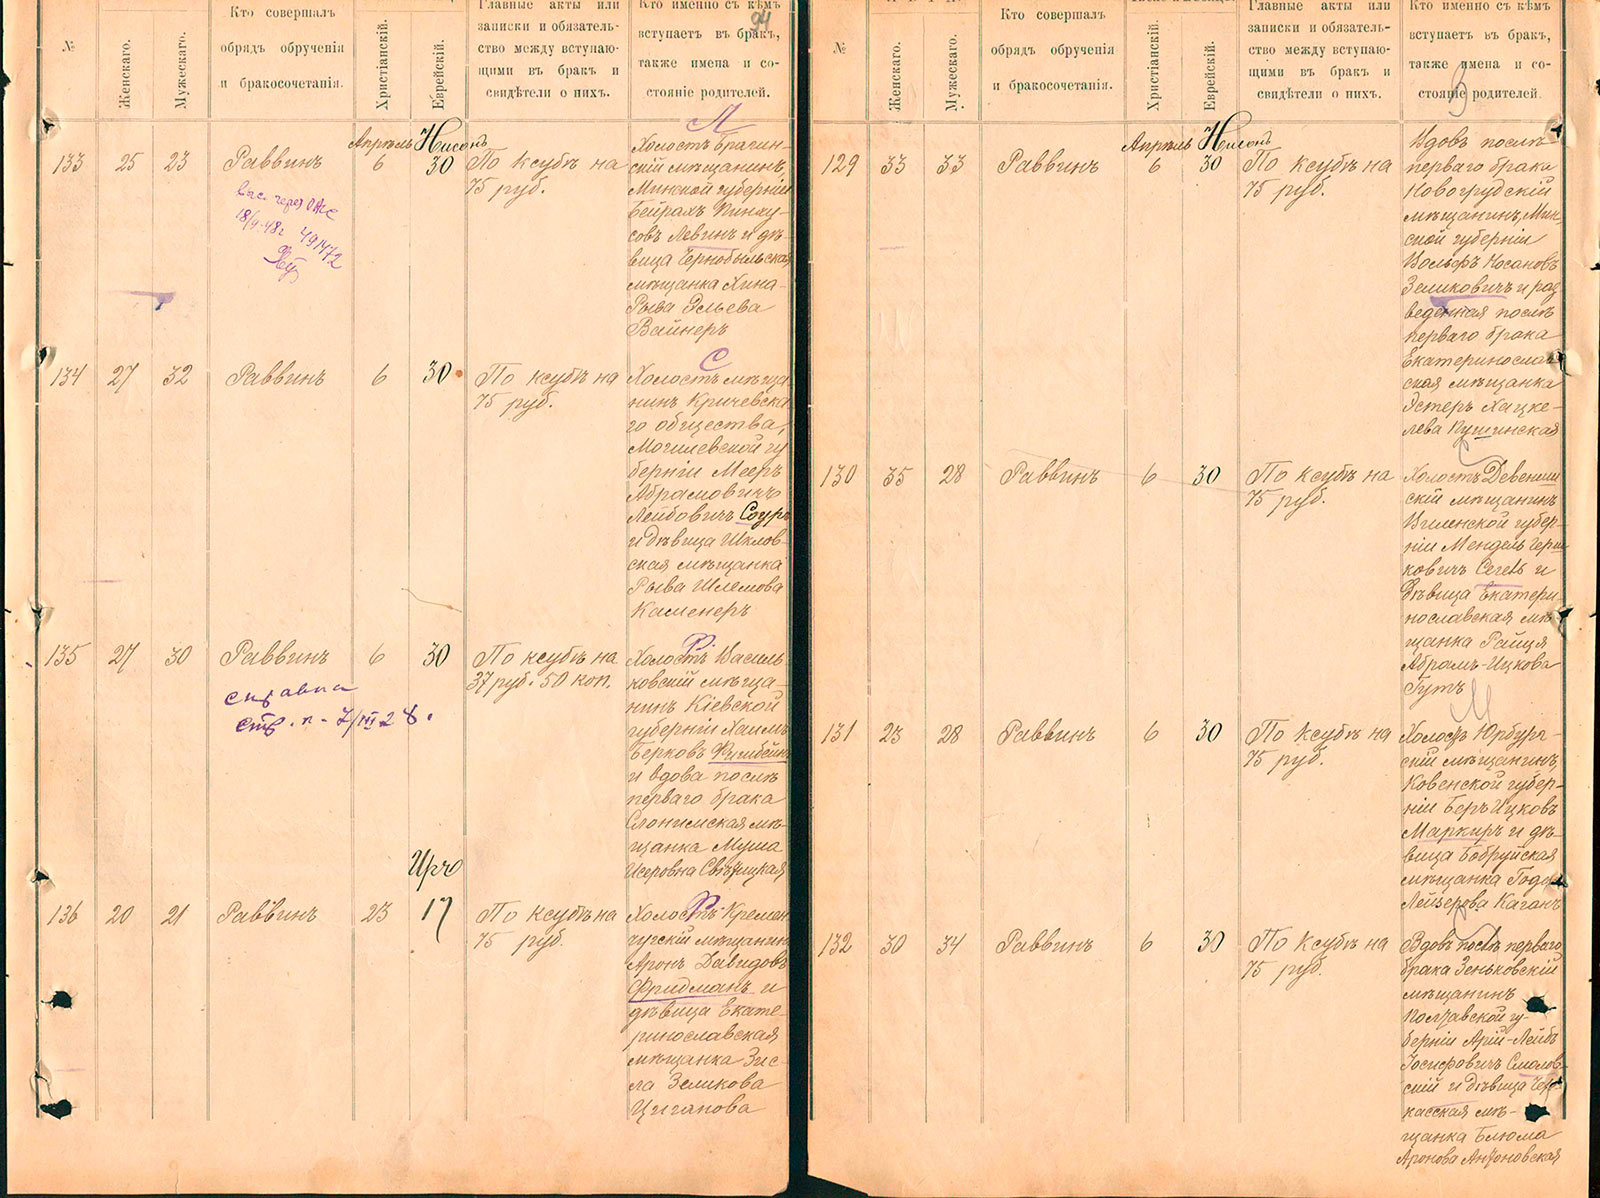 94
№
Женскаго.
Мужескаго.
Кто совершалъ
обрядъ обрученія
и бракосочетанія.
Христіанскій.
Еврейскій.
Главные акты или
записки и обязатель-
ство между вступаю-
щими въ бракъ и
свидѣтели о нихъ.
Кто именно съ кѣмъ
вступаетъ въ бракъ,
также имена и со-
стояніе родителей.
Апрѣль Нисонъ
133 25 23 Раввинъ 6 30 По ксубѣ на
75 руб.
Л
Холостъ брагин-
скій мѣщанинъ,
Минской губерніи
Бейрахъ Пинху-
совъ Левинъ и дѣ-
вица Чернобыльская
мѣщанка Хина-
Рыва Эльева
Вайнеръ
18/9-48г 491472
134 27 32 Раввинъ 6 30 По ксубѣ на
75 руб.
С
Холостъ мѣща
нинъ Кричевска
го общества,
Могилевской гу
берніи Мееръ
Абрамовичъ
Лейбовичъ Соуръ
и дѣвица Шклов-
ская мѣщанка
Рыва Шлемова
Каменеръ
135 27 30 Раввинъ 6 30 По ксубѣ на
37 руб. 50 коп.
справка
Ф
Холостъ Василь-
ковскій мѣща-
нинъ Кіевской
губерніи Хаимъ
Берковъ
и вдова послѣ
перваго брака
Слонимская мѣ-
щанка Муша
Исеровна
Иръ
136 20 21 Раввинъ 23 17 По ксубѣ на
75 руб.
Ф
Холостъ Кремен
чугскій мѣщанинъ
Аронъ Давидовъ
Фридманъ и
дѣвица Екате-
ринославская
мѣщанка Зис-
ла Зеликова
Циганова
№
Женскаго.
Мужескаго.
Кто совершалъ
обрядъ обрученія
и бракосочетанія.
Христіанскій.
Еврейскій.
Главные акты или
записки и обязатель-
ство между вступаю-
щими въ бракъ и
свидѣтели о нихъ.
Кто именно съ кѣмъ
вступаетъ въ бракъ,
также имена и со-
стояніе родителей.
Апрѣль Нисонъ
129 33 33 Раввинъ 6 30 По ксубѣ на
75 руб.
Вдовъ послѣ
перваго брака
Новогрудскій
мѣщанинъ, Мин-
ской губерніи
Вольфъ Носановъ
Зеликовичъ и раз
веденная послѣ
перваго брака
Екатеринослав
ская мѣщанка
Эстеръ Хацке-
лева Пушинская
130 35 28 Раввинъ 6 30 По ксубѣ на
75 руб.
Холостъ Девениш
скій мѣщанинъ
Виленской губер-
ніи Мендель
ковичъ и
дѣвица Екатери
нославская мѣ
щанка Райця
Абрамъ-Ицкова
Гутъ
131 23 28 Раввинъ 6 30 По ксубѣ на
75 руб.
М
Холостъ Юрбург-
скій мѣщанинъ,
Ковенской губер-
ніи Беръ Ицковъ
Маркиръ и дѣ-
вица Бобруйская
мѣщанка Года
Лейзерова Каганъ
132 30 34 Раввинъ 6 30 По ксубѣ на
75 руб.
Вдовъ послѣ перваго
брака Зеньковскій
мѣщанинъ
Полтавской гу-
берніи Арій-Лейбъ
Іосифовичъ Смолов-
скій и дѣвица Чер-
касская мѣ-
щанка Блюма
Аронова Антоновская